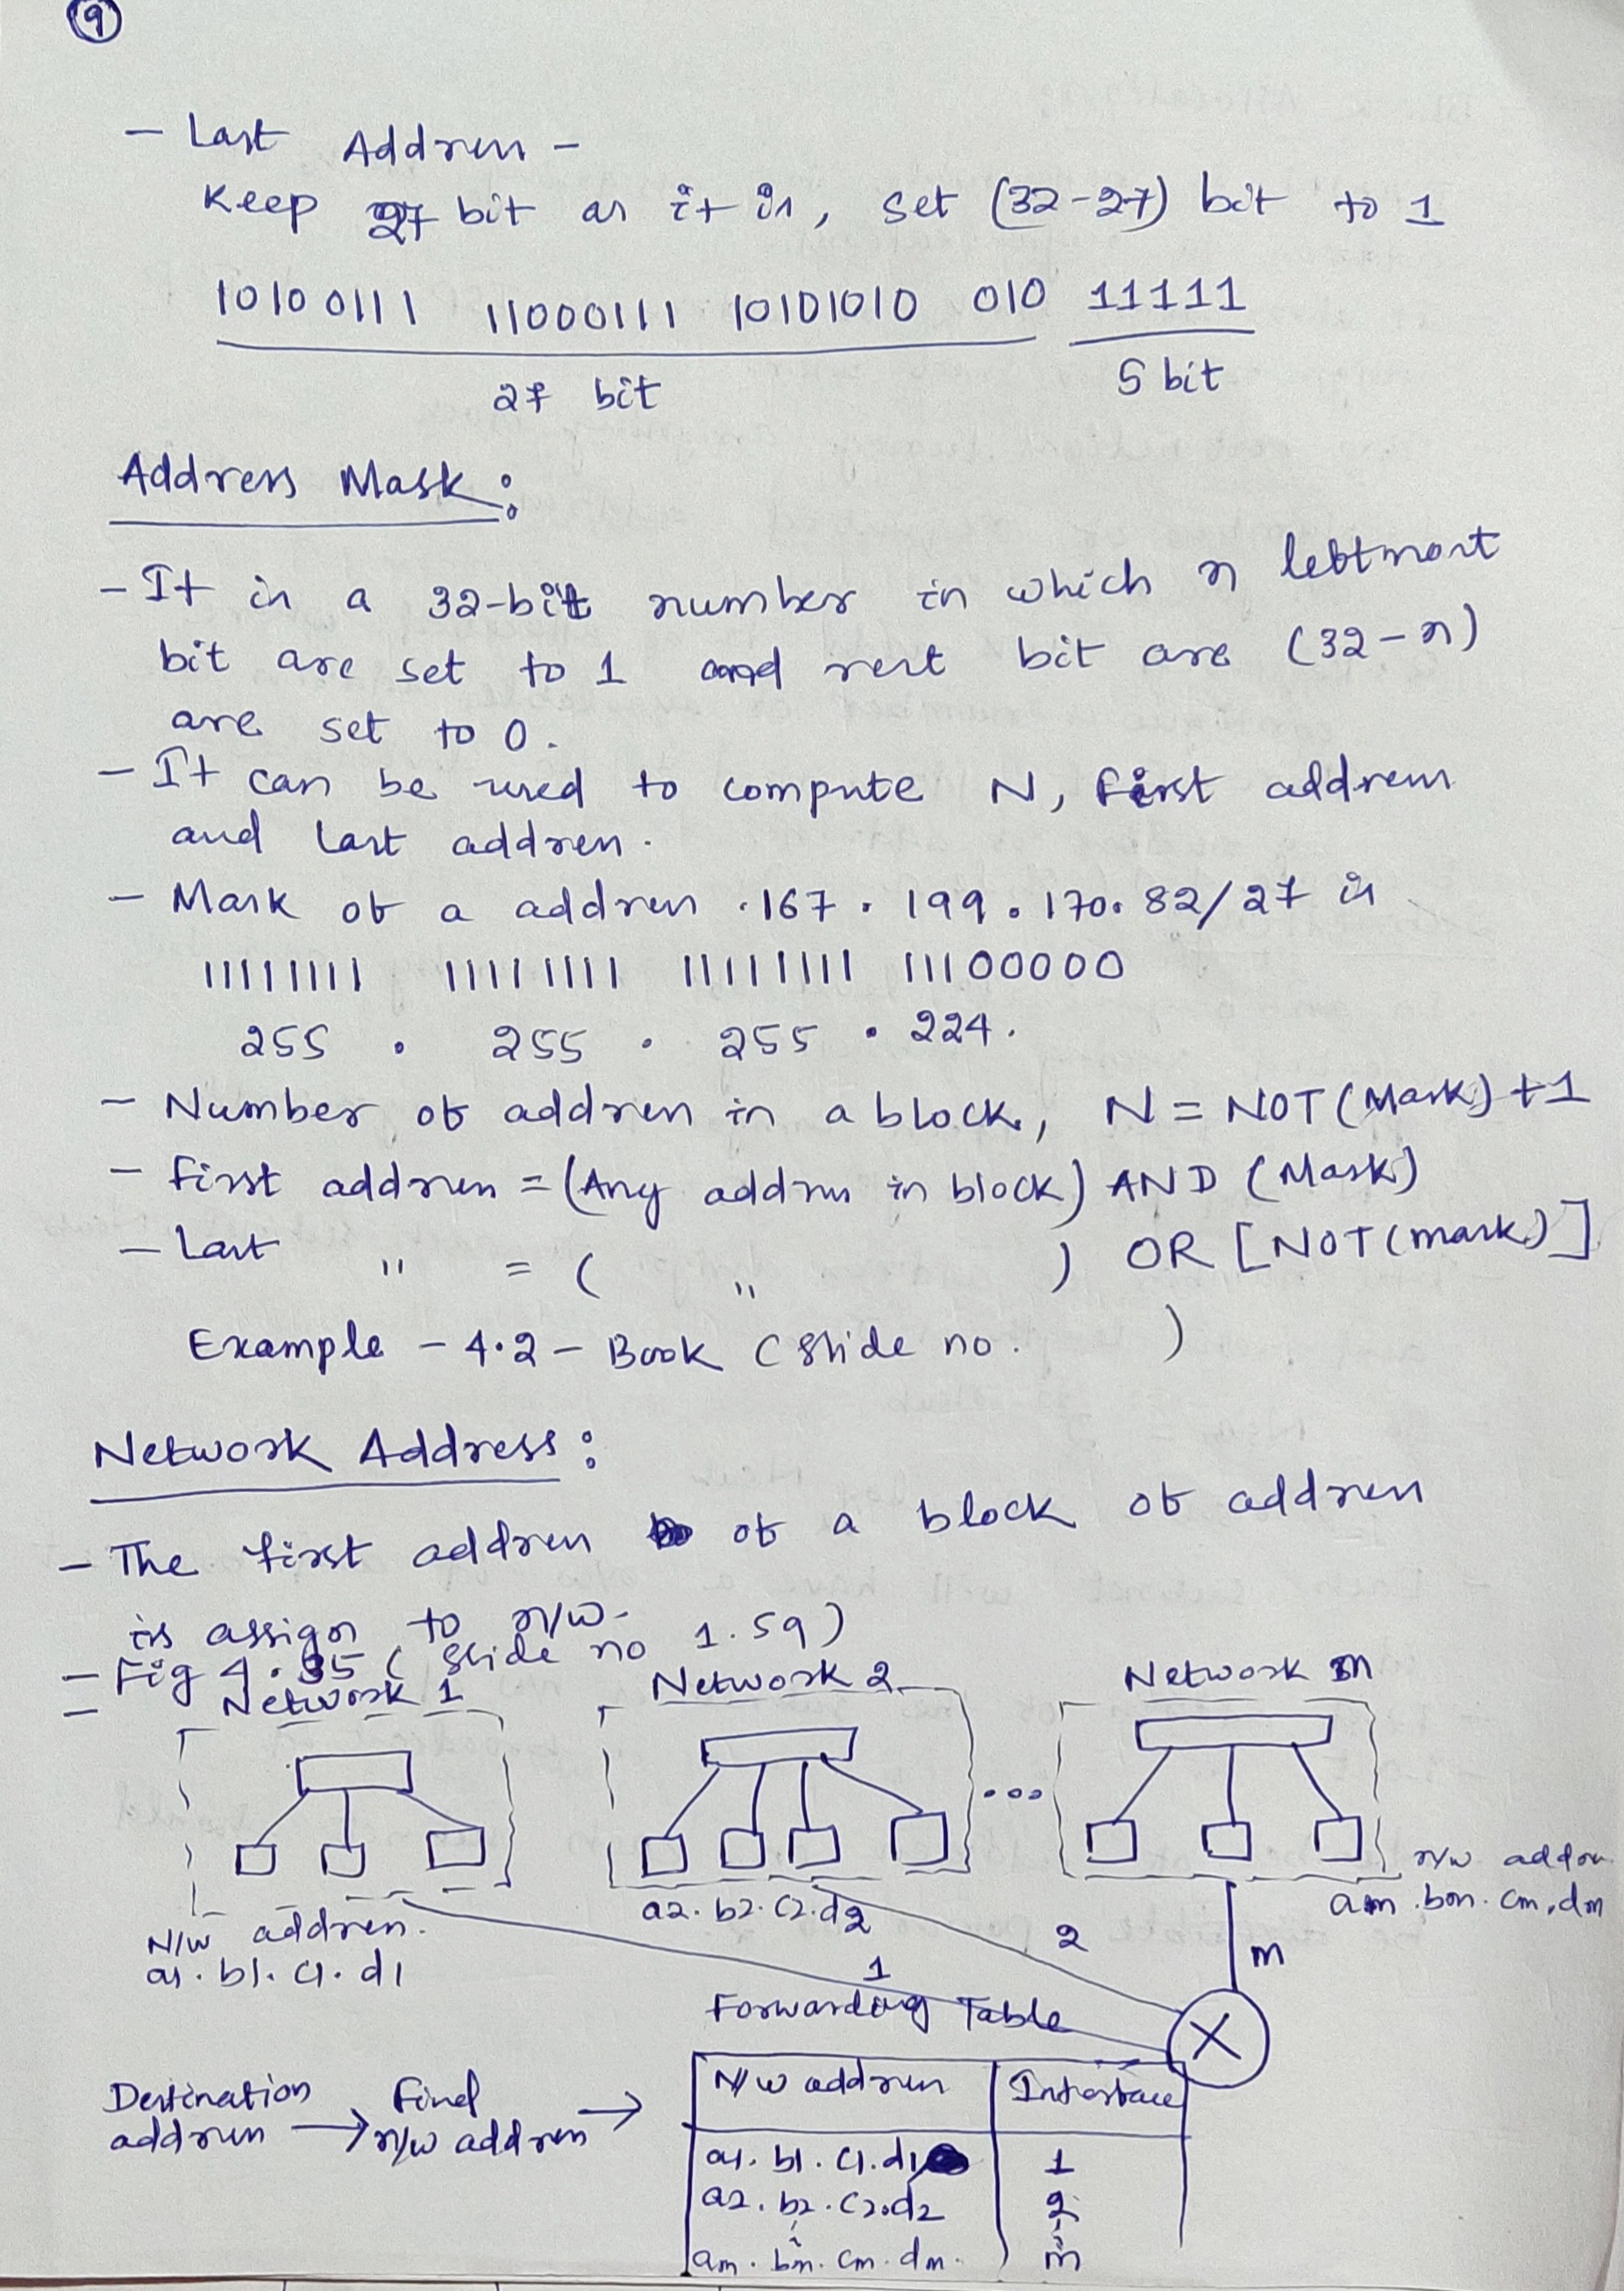 9
- Last Address -
Keep 27 bit as it is, set (32-27) bit to 1
10100111 11000111 10101010 010 11111
27 bit 5 bit
Address Mask :
- It is a 32-bit number in which n leftmost
bit are set to 1 and rest bit are (32-n)
are set to 0.
- It can be used to compute N, first address
and last address.
- Mask of a address .167.199.170.82/27 is
11111111 11111111 11111111 11100000
255 . 255 . 255 . 224.
- Number of address in a block, N = NOT (Mask) + 1
- first address = (Any address in block) AND (Mask)
- Last " = ( " ) OR [NOT (mask)]
Example - 4.2 - Book (Slide no. )
Network Address :
- The first address of a block of address
is assign to n/w.
- Fig 4.35 (Slide no 1.59)
Network 1 Network 2 Network m
...
N/W address. a2.b2.c2.d2 n/w address
a1.b1.c1.d1 am.bm.cm.dm
1 2 m
Forwarding Table
X
N/w address Interface
Destination → Find →
address n/w address
a1.b1.c1.d1 1
a2.b2.c2.d2 2
am.bm.cm.dm. m